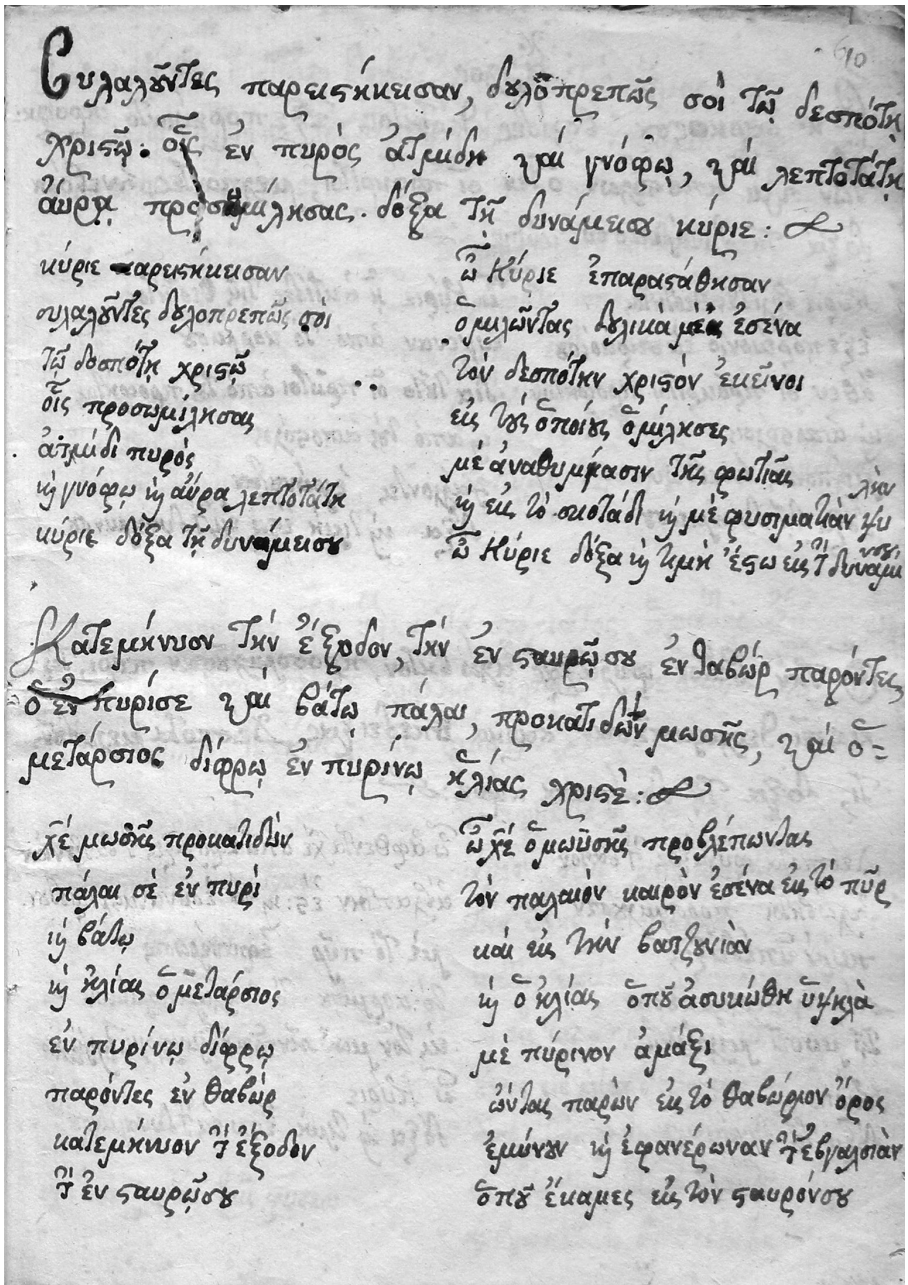 610
Συλαλοῦντες παρειστήκεισαν, δουλοπρεπῶς σοὶ τῷ δεσπότῃ
χριστῷ. οἷς ἐν πυρὸς ἀτμίδι καὶ γνόφῳ, καὶ λεπτοτάτῃ
ἀύρᾳ προσωμίλησας. δόξα τῇ δυνάμεισου κύριε:
κύριε παρειστήκεισαν
συλαλοῦντες δουλοπρεπῶς σοι
τῷ δεσπότῃ χριστῷ
οἷς προσωμίλησας
ἀτμίδι πυρὸς
καὶ γνόφῳ καὶ αὔρα λεπτοτάτη
κύριε δόξα τῇ δυνάμεισου
ὦ Κύριε ἐπαραστάθησαν
ὁμιλῶντας δουλικὰ μὲ ἐσένα
τὸν δεσπότην χριστὸν ἐκεῖνοι
εἰς τοὺς ὁποίους ὁμίλησες
μὲ ἀναθυμίασιν τῆς φωτιᾶς
καὶ εἰς τὸ σκοτάδι καὶ μὲ φυσιματιὰν ψυλὴν
ὦ Κύριε δόξα καὶ τιμὴ ἔστω εἰς τὴ δυναμίνσου
Κατεμήνυον τὴν ἔξοδον, τὴν ἐν σταυρῷσου ἐν θαβὼρ παρόντες,
ὁ ἐν πυρίσε καὶ βάτω πάλαι, προκατιδὼν μωσῆς, καὶ ὁ=
μετάρσιος δίφρῳ ἐν πυρίνῳ ἠλίας χριστέ:
χ̅ε̅ μωσῆς προκατιδὼν
πάλαι σὲ ἐν πυρὶ
καὶ βάτῳ
καὶ ἠλίας ὁ μετάρσιος
ἐν πυρίνῳ δίφρῳ
παρόντες ἐν θαβὼρ
κατεμήνυον τὴ ἐξοδον
τὴ ἐν σταυρῷσου
ὦ χ̅ε̅ ὁ μωϋσῆς προβλέπωντας
τὸν παλαιὸν καιρὸν ἐσένα εἰς τὸ πῦρ
καὶ εἰς τὴν βατζυνιὰν
καὶ ὁ ἠλίας ὁποῦ ἀσυκώθη ὑψηλὰ
μὲ πύρινον ἁμάξι
ὦντας παρὼν εἰς τὸ θαβώριον ὄρος
ἐμύνουν καὶ ἐφανέρωναν τὴ ἐβγαλσιὰν
ὁποῦ ἔκαμες εἰς τὸν σταυρόνσου